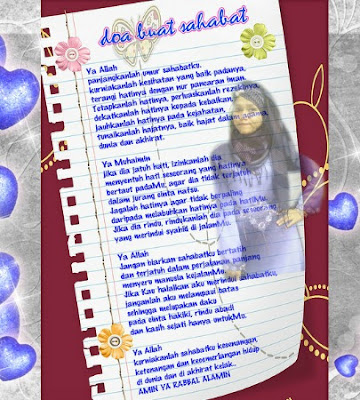 doa buat sahabat
Ya Allah
panjangkanlah umur sahabatku,
kurniakanlah kesihatan yang baik padanya,
terangi hatinya dengan nur pancaran iman.
Tetapkanlah hatinya, perluaskanlah rezekinya,
dekatkanlah hatinya kepada kebaikan,
Jauhkanlah hatinya pada kejahatan,
tunaikanlah hajatnya, baik hajat dalam agama,
dunia dan akhirat.
Ya Muhaimin
Jika dia jatuh hati, izinkanlah dia
menyentuh hati seseorang yang hatinya
bertaut padaMu, agar dia tidak terjatuh
dalam jurang cinta nafsu.
Jagalah hatinya agar tidak berpaling
daripada melabuhkan hatinya pada hatiMu.
Jika dia rindu, rindukanlah dia pada seseorang
yang merindui syahid di jalanMu.
Ya Allah
Jangan biarkan sahabatku bertatih
dan terjatuh dalam perjalanan panjang
menyeru manusia kejalanMu.
Jika Kau halalkan aku merindui sahabatku,
janganlah aku melampaui batas
sehingga melupakan daku
pada cinta hakiki, rindu abadi
dan kasih sejati hanya untukMu.
Ya Allah
kurniakanlah sahabatku kesenangan
ketenangan dan kecemerlangan hidup
di dunia dan di akhirat kelak..
AMIN YA RABBAL ALAMIN